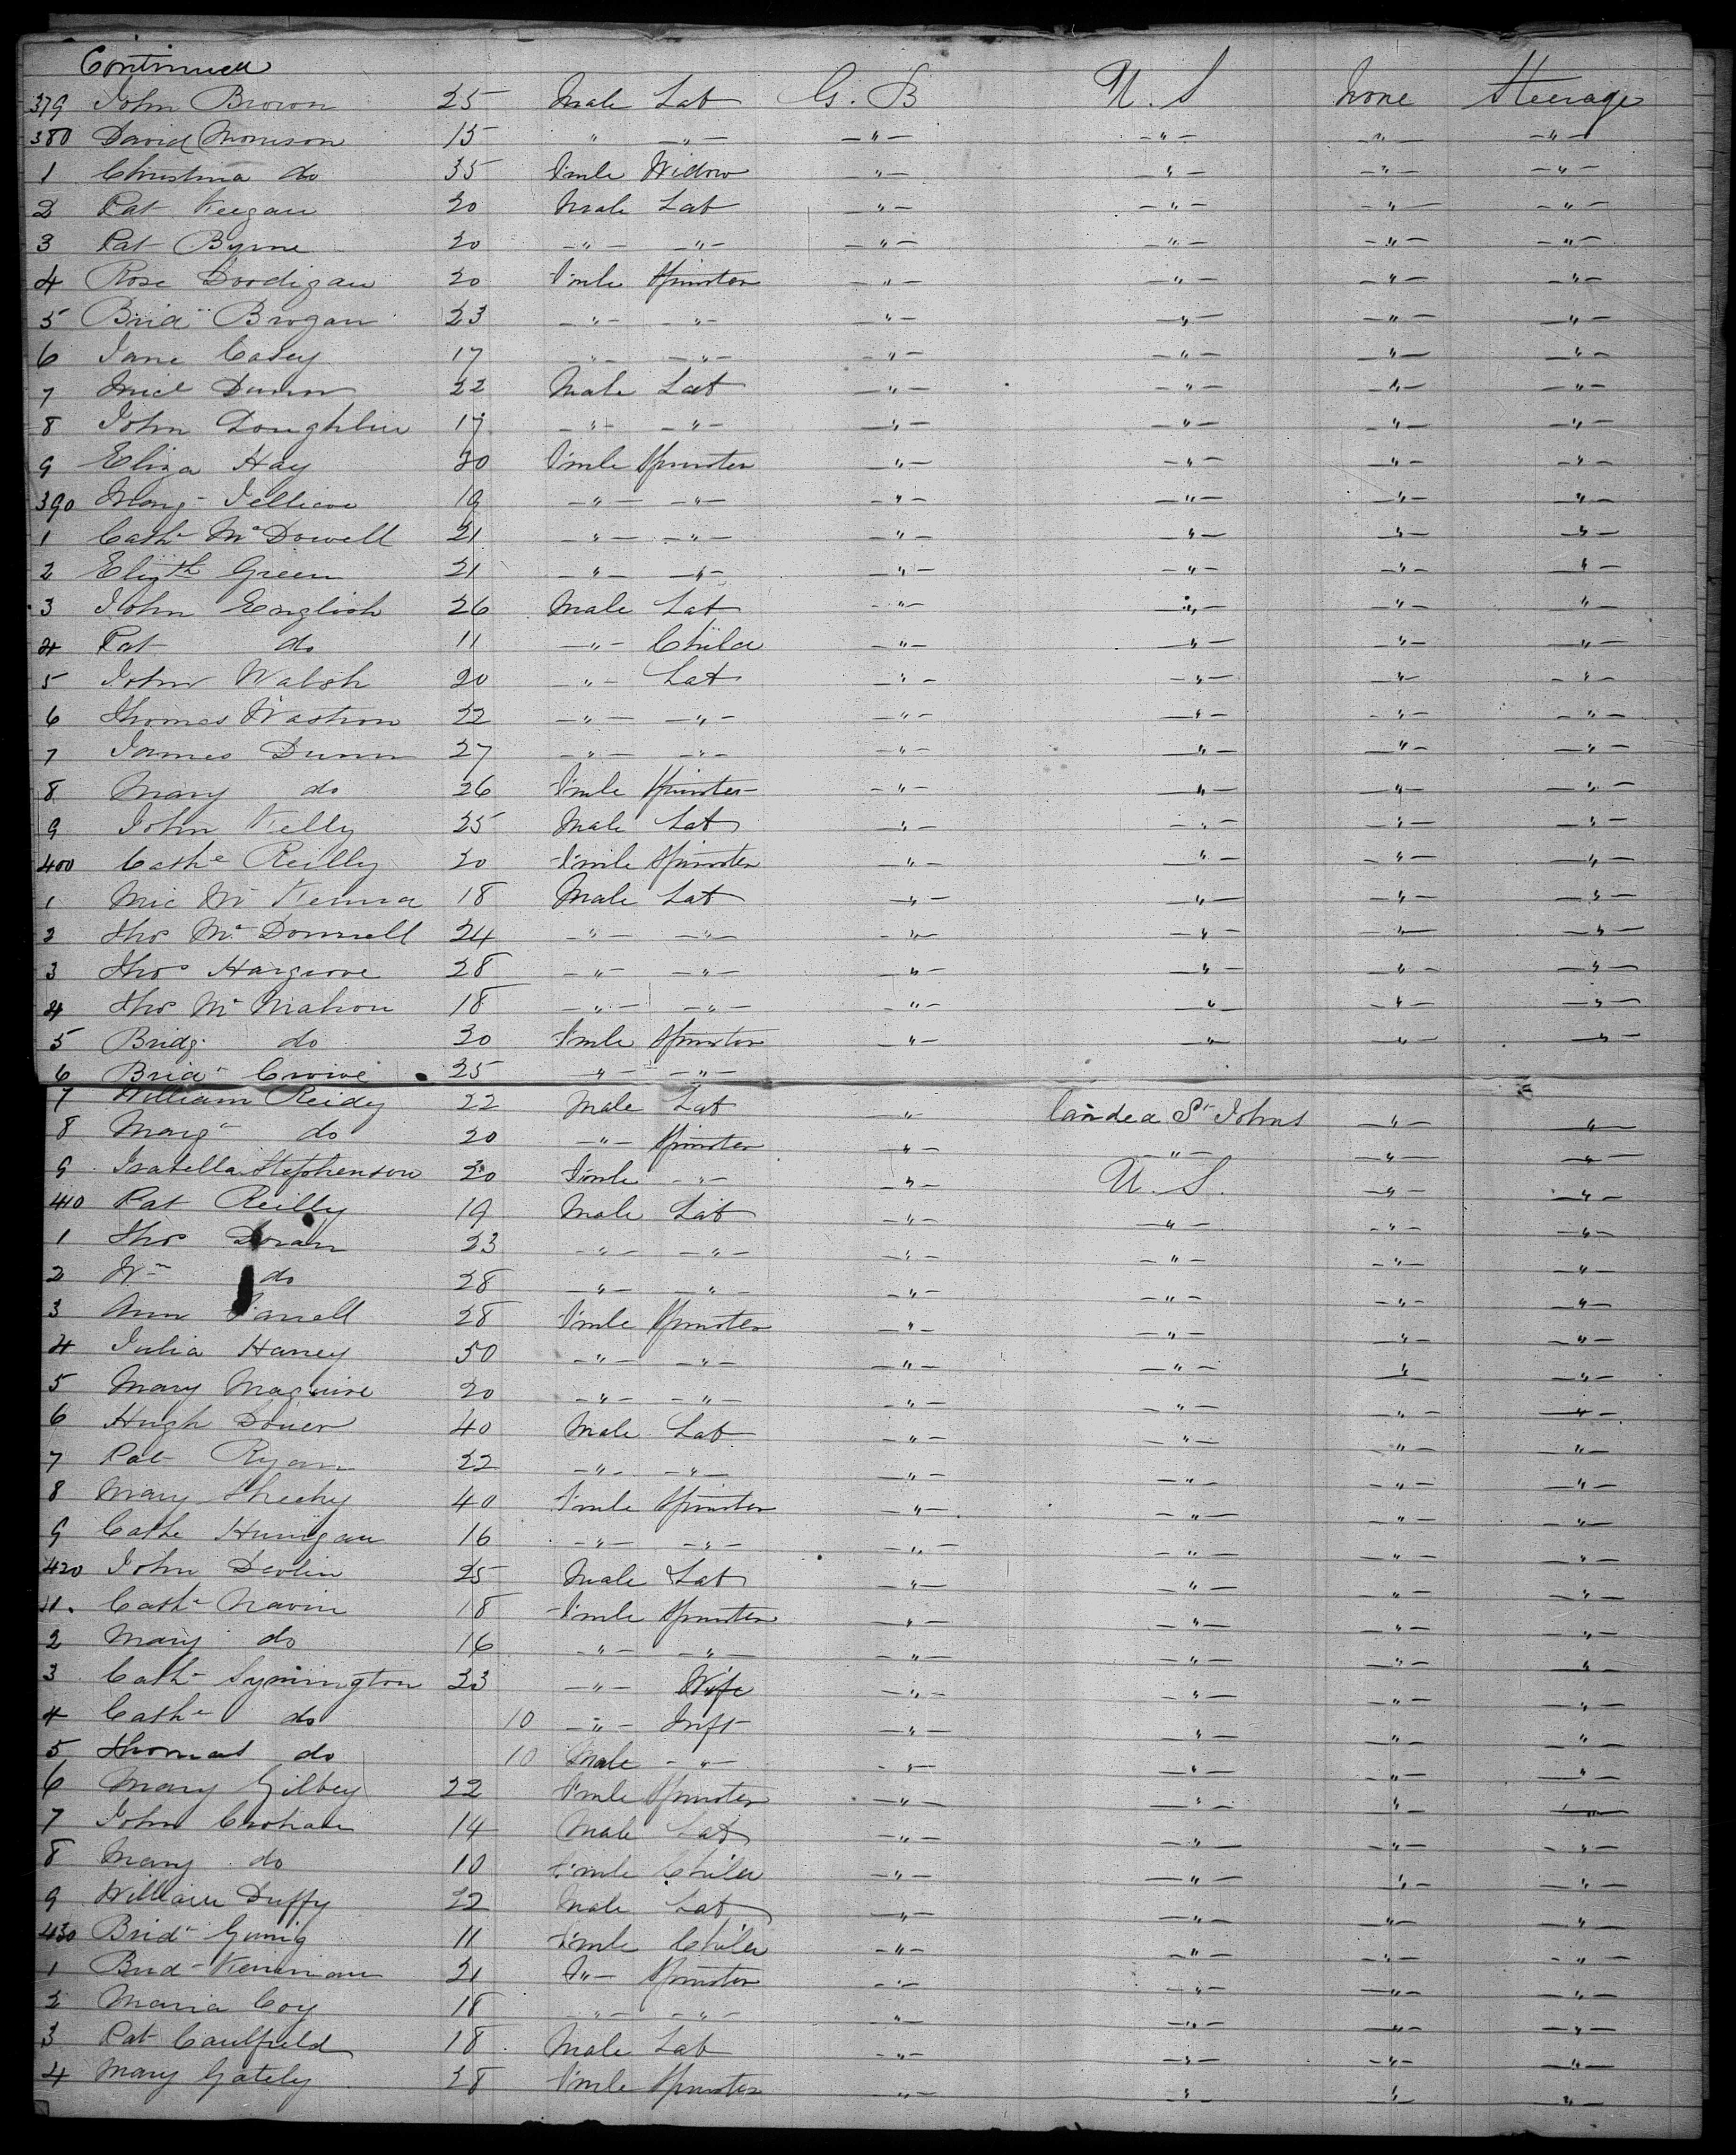 Continued
379 John Brown 25 Male Lab G. B U. S None Steerage
380 David Morrison 15 " " " " " "
1 Christina do 35 F'mle Widow " " " "
2 Pat Keegan 20 Male Lab " " " "
3 Pat Byrne 20 " " " " " "
4 Rose Doodigan 20 F'mle Spinster " " " "
5 Brid Brogan 23 " " " " " "
6 Jane Casey 17 " " " " " "
7 Micl Dunn 22 Male Lab " " " "
8 John Loughlin 17 " " " " " "
9 Eliza Hay 20 F'mle Spinster " " " "
390 Marg 19 " " " " " "
1 Cath McDowell 21 " " " " " "
2 Elizth Green 21 " " " " " "
3 John English 26 Male Lab " " " "
4 Pat do 11 " Child " " " "
5 John Walsh 20 " Lab " " " "
6 Thomas 22 " " " " " "
7 James Dunn 27 " " " " " "
8 Mary do 26 F'mle Spinster " " " "
9 John Kelly 25 Male Lab " " " "
400 Cathe Reilly 20 F'mle Spinster " " " "
1 Mic McKenna 18 Male Lab " " " "
2 Thos McDonnell 24 " " " " " "
3 Thos Hargrove 28 " " " " " "
4 Thos McMahon 18 " " " " " "
5 Bridg. do 20 F'mle Spinster " " " "
6 Brid 25 " "
7 William Reidy 22 Male Lab " landed St Johns " "
8 Marg do 20 " Spinster " " " "
9 Isabella Stephenson 20 F'mle " " U. S. " "
410 Pat Reilly 19 Male Lab " " " "
1 Thos Doran 23 " " " " " "
2 Wm do 28 " " " " " "
3 Ann Farrell 28 F'mle Spinster " " " "
4 Julia Haney 50 " " " " " "
5 Mary Maguire 20 " " " " " "
6 Hugh 40 Male Lab " " " "
7 Pat Ryan 22 " " " " " "
8 Mary Sheehy 40 F'mle Spinster " " " "
9 Cathe Hunigan 16 " " " " " "
420 John Devlin 25 Male Lab " " " "
11. Cathe Navin 18 F'mle Spinster " " " "
2 Mary do 16 " " " " " "
3 Cath Symington 23 " Wife " " " "
4 Cathe do 10 " Inft " " " "
5 Thomas do 10 Male " " " " "
6 Mary Gilbey 22 F'mle Spinster " " " "
7 John Crohan 14 Male Lab " " " "
8 Mary do 10 F'mle Child " " " "
9 William Duffy 22 Male Lab " " " "
430 Brid 11 F'mle Child " " " "
1 Brid 21 F" Spinster " " " "
2 Maria Coy 18 " " " " " "
3 Pat Caulfield 18 Male Lab " " " "
4 Mary Gately 28 F'mle Spinster " " " "